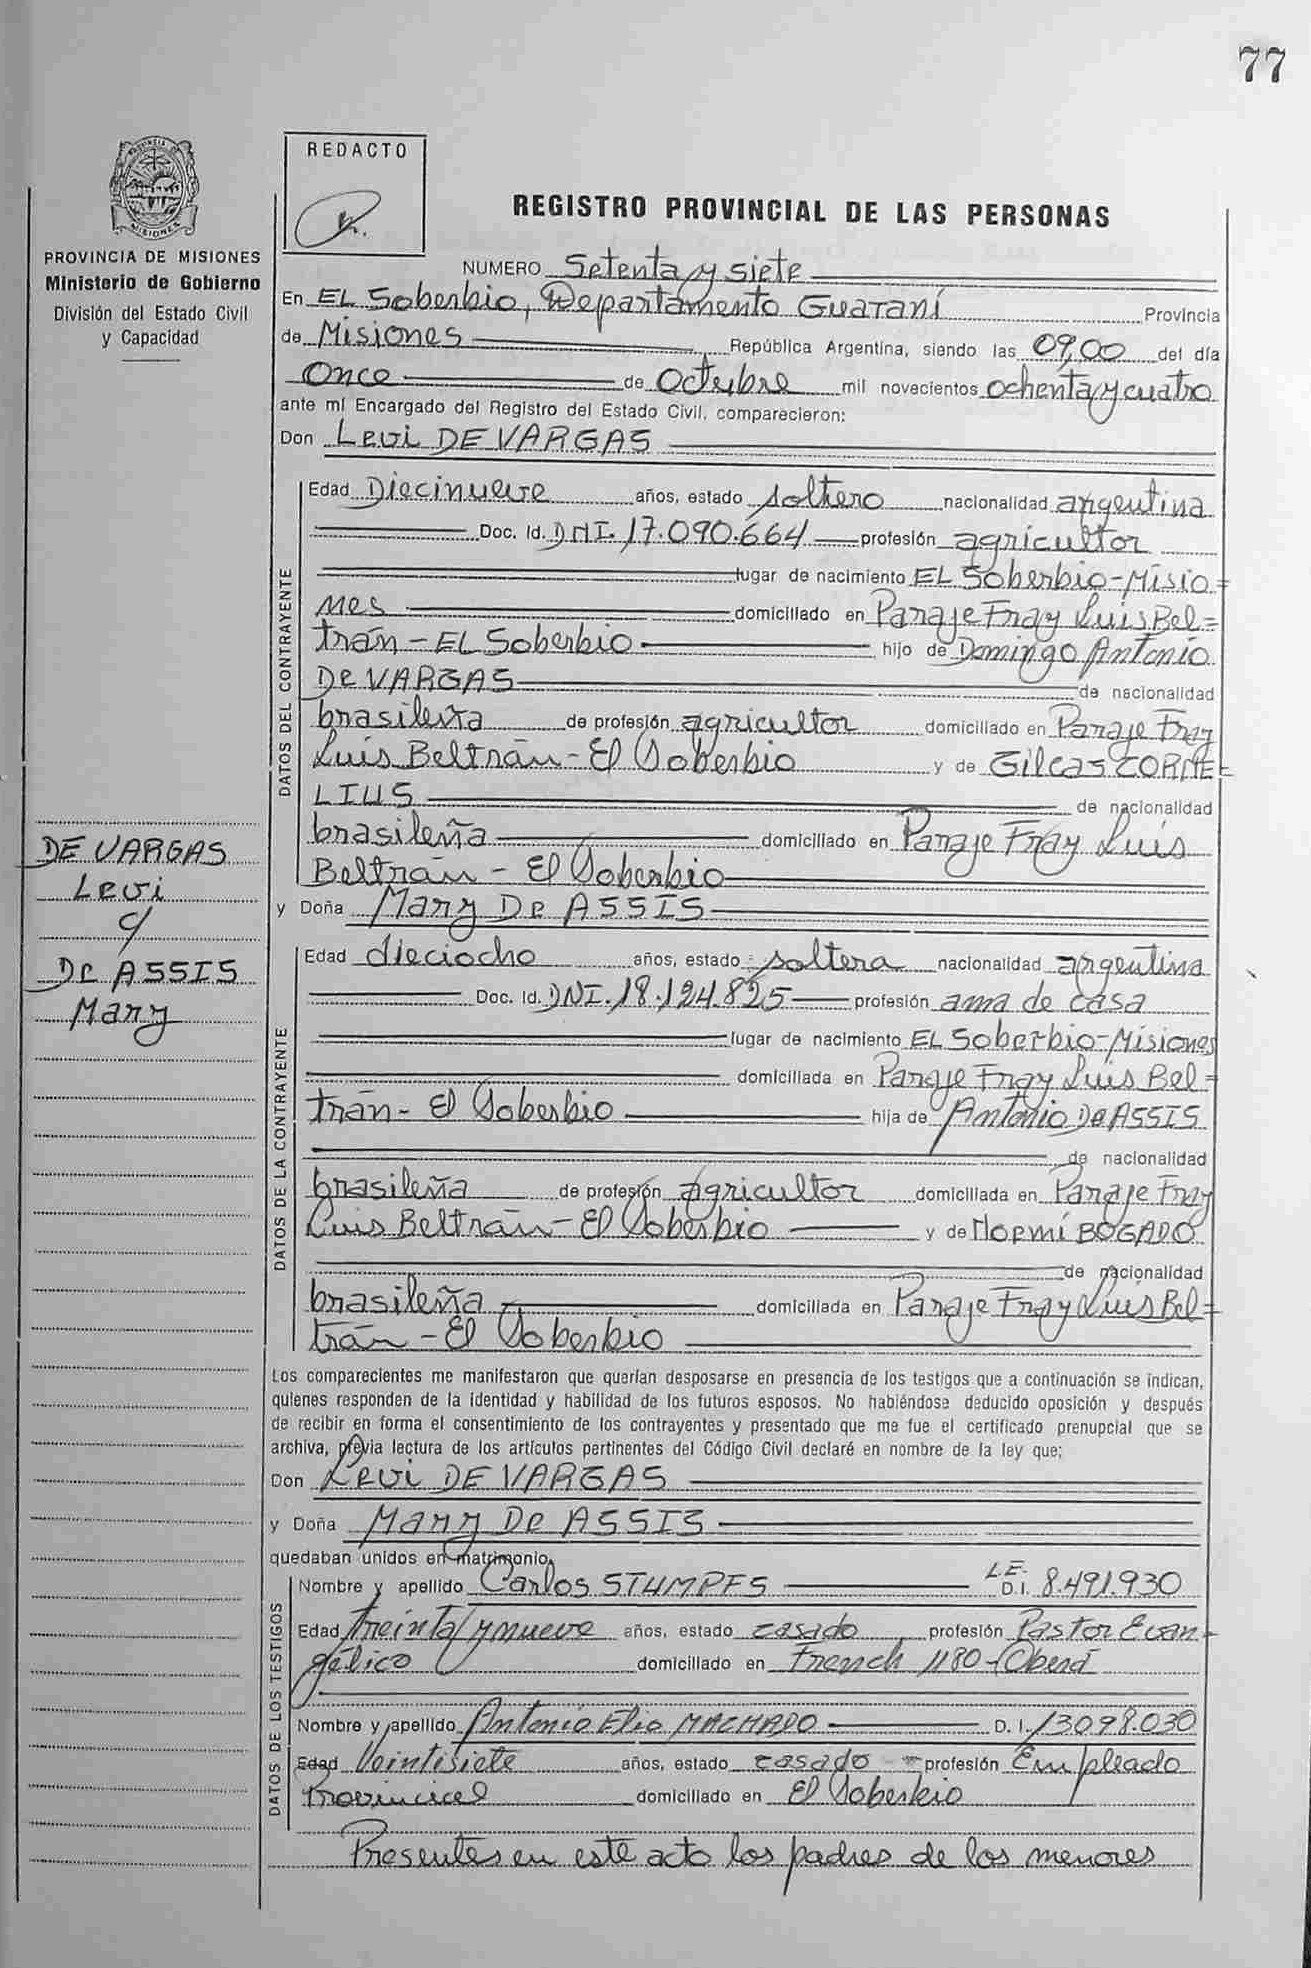 77
REDACTO
PROVINCIA DE MISIONES
Ministerio de Gobierno
División del Estado Civil
y Capacidad
REGISTRO PROVINCIAL DE LAS PERSONAS
NUMERO Setenta y siete
En EL Soberbio, Departamento Guaraní Provincia
de Misiones República Argentina, siendo las 09,00 del día
Once de Octubre mil novecientos ochenta y cuatro
ante mí Encargado del Registro del Estado Civil, comparecieron:
Don Levi DE VARGAS
DATOS DEL CONTRAYENTE
Edad Diecinueve años, estado soltero nacionalidad argentina
Doc. Id. DNI. 17.090.664 profesión agricultor
lugar de nacimiento EL Soberbio-Misio=
nes domiciliado en Paraje Fray Luis Bel=
trán - EL Soberbio hijo de Domingo Antonio
De VARGAS de nacionalidad
brasileña de profesión agricultor domiciliado en Paraje Fray
Luis Beltrán - El Soberbio y de Gilcas CORNE=
LIUS de nacionalidad
brasileña domiciliado en Paraje Fray Luis
Beltrán - El Soberbio
y Doña Mary De ASSIS
DE VARGAS
Levi
c/
De ASSIS
Mary
DATOS DE LA CONTRAYENTE
Edad dieciocho años, estado soltera nacionalidad argentina
Doc. Id. DNI. 18.124.825 profesión ama de casa
lugar de nacimiento EL Soberbio-Misiones
domiciliada en Paraje Fray Luis Bel=
trán - El Soberbio hija de Antonio De ASSIS
de nacionalidad
brasileña de profesión agricultor domiciliada en Paraje Fray
Luis Beltrán - El Soberbio y de Noemí BOGADO
de nacionalidad
brasileña domiciliada en Paraje Fray Luis Bel=
trán - El Soberbio
Los comparecientes me manifestaron que querían desposarse en presencia de los testigos que a continuación se indican,
quienes responden de la identidad y habilidad de los futuros esposos. No habiéndose deducido oposición y después
de recibir en forma el consentimiento de los contrayentes y presentado que me fue el certificado prenupcial que se
archiva, previa lectura de los artículos pertinentes del Código Civil declaré en nombre de la ley que;
Don Levi DE VARGAS
y Doña Mary De ASSIS
quedaban unidos en matrimonio.
DATOS DE LOS TESTIGOS
Nombre y apellido Carlos STUMPFS L.E. D.I. 8.491.930
Edad treinta y nueve años, estado casado profesión Pastor Evan=
gélico domiciliado en French 1180-Oberá
Nombre y apellido Antonio Elio MACHADO D.I. 13.098.030
Edad Veintisiete años, estado casado profesión Empleado
Provincial domiciliado en El Soberbio
Presentes en este acto los padres de los menores